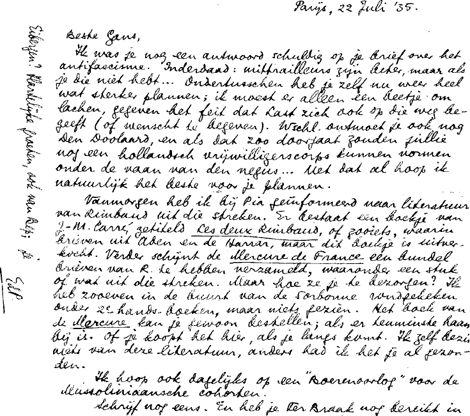 Parijs, 22 Juli '35.
Beste Gans,
Ik was je nog een antwoord schuldig op je brief over het
antifascisme. Inderdaad: mitrailleurs zijn beter, maar als
je die niet hebt... Ondertusschen heb je zelf nu weer heel
wat sterker plannen; ik moest er alleen een beetje om
lachen, gegeven het feit dat Last zich ook op die weg be-
geeft (of wenscht te begeven). Wschl. ontmoet je ook nog
Den Doolaard, en als dat zoo doorgaat zouden jullie
nog een hollandsch vrijwilligerscorps kunnen vormen
onder de vaan van den negus... Met dat al hoop ik
natuurlijk het beste voor je plannen.
Vanmorgen heb ik bij Pia geïnformeerd naar literatuur
van Rimbaud uit die streken. Er bestaat een boekje van
J-M. Carré, getiteld Les deux Rimbaud, of zooiets, waarin
brieven uit Aden en de Harrar, maar dit boekje is uitver-
kocht. Verder schijnt de Mercure de France een bundel
brieven van R. te hebben verzameld, waaronder een stuk
of wat uit die streken. Maar hoe ze je te bezorgen? Ik
heb zooeven in de buurt van de Sorbonne rondgekeken
onder 2e hands-boeken, maar niets gezien. Het boek van
de Mercure kan je gewoon bestellen; als er tenminste haast
bij is. of je koopt het hier, als je langs komt. Ik zelf bezit
niets van deze literatuur, anders had ik het je al gezon-
den.
Ik hoop ook dagelijks op een "Boerenoorlog" voor de
Mussoliniaansche cohorten.
Schrijf nog eens. En heb je Ter Braak nog bereikt in
Eibergen? Hartelijke groeten, ook van Bep, je
EdP